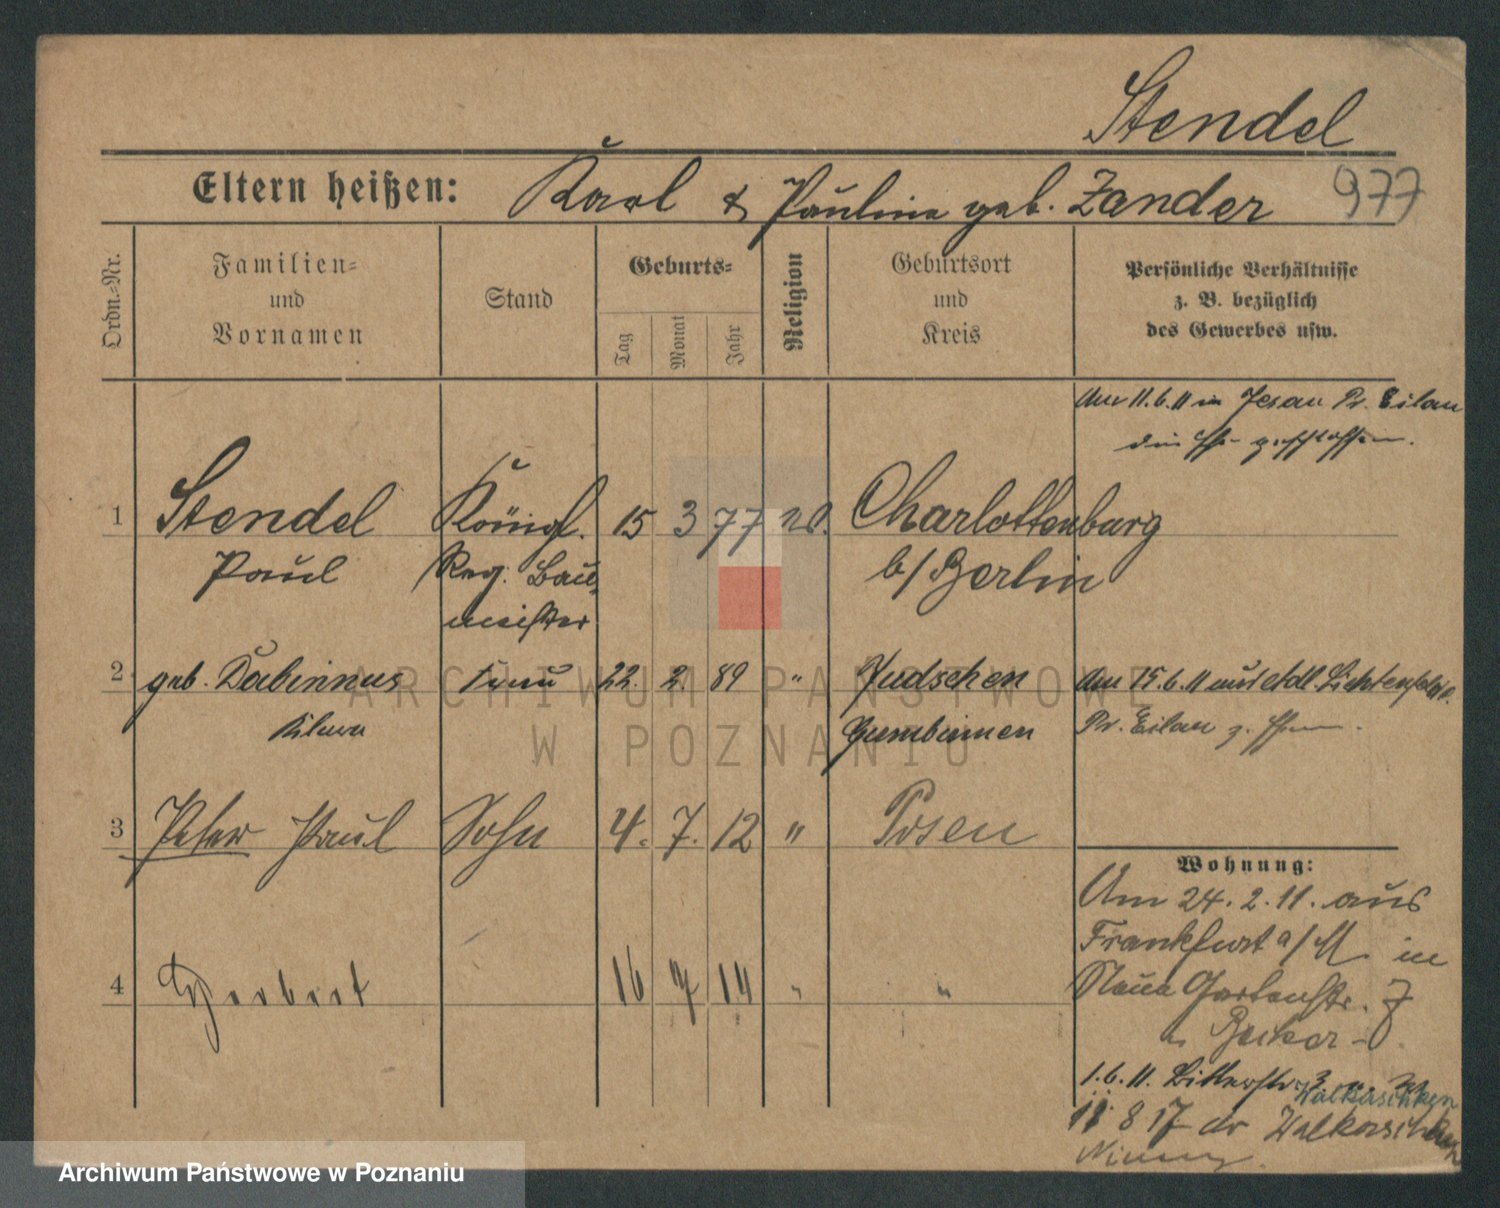 Stendel
Eltern heißen: Karl & Pauline geb. Zander 977
Ordn.-Nr.
Familien-
und
Vornamen
Stand
Geburts-
Tag
Monat
Jahr
Religion
Geburtsort
und
Kreis
Persönliche Verhältnisse
z. B. bezüglich
des Gewerbes usw.
Am 11.6.11 in Jesau Pr. Eilau
die Ehe geschlossen.
1 Stendel Königl. 15 3 77 Charlottenburg
Paul Reg. Bau-
meister b/Berlin
2 geb. Dabinnus Frau 22. 2. 89 " Judschen Am 15.6.11
Gumbinnen Pr. Eilau
3 Peter Paul Sohn 4. 7. 12 " Posen
4 Herbert 16 7 14 " "
Wohnung:
Am 24.2.11. aus
Frankfurt a/M. in
Neue Gartenstr.
Becker
1.6.11. Bitterstr. 3
Walkaschken
11 8 17
ARCHIWUM PAŃSTWOWE
W POZNANIU
Archiwum Państwowe w Poznaniu